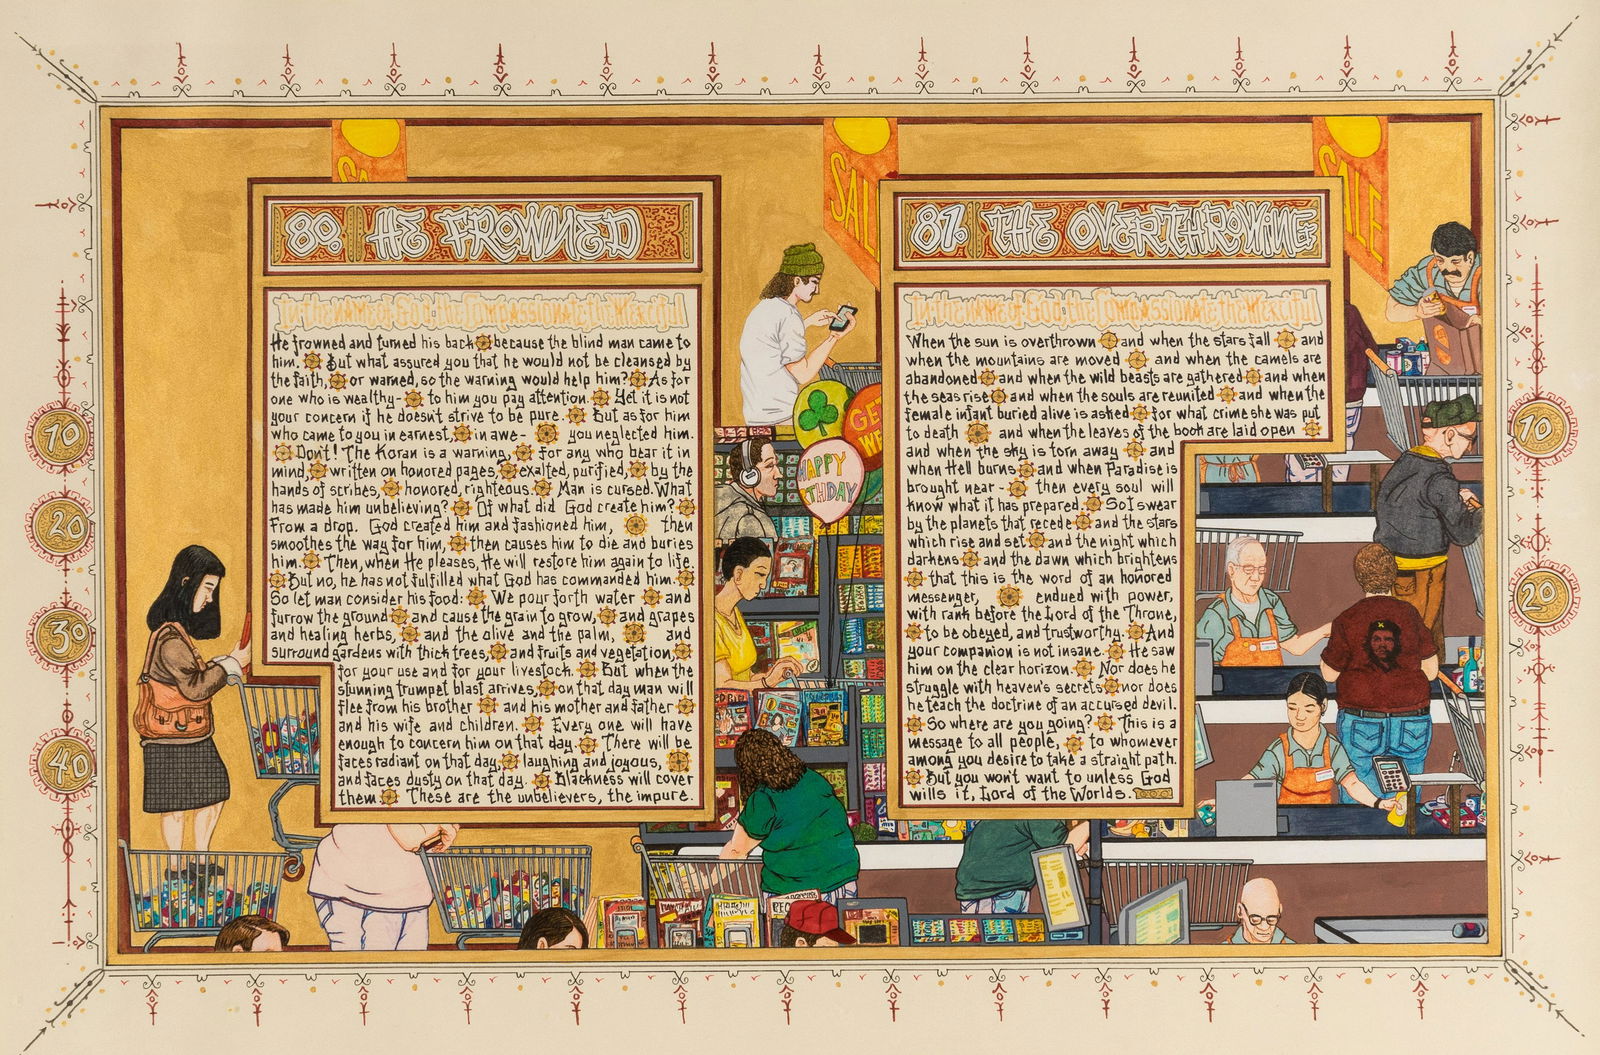 SALE
SALE
80. HE FROWNED
In the name of God, the Compassionate the Merciful
He frowned and turned his back because the blind man came to
him. But what assured you that he would not be cleansed by
the faith, or warned, so the warning would help him? As for
one who is wealthy- to him you pay attention. Yet it is not
your concern if he doesn't strive to be pure. But as for him
who came to you in earnest, in awe- you neglected him.
Don't! The Koran is a warning, for any who bear it in
mind, written on honored pages, exalted, purified, by the
hands of scribes, honored, righteous. Man is cursed. What
has made him unbelieving? Of what did God create him?
From a drop. God created him and fashioned him, then
smoothes the way for him, then causes him to die and buries
him. Then, when He pleases, He will restore him again to life.
But no, he has not fulfilled what God has commanded him.
So let man consider his food: We pour forth water and
furrow the ground and cause the grain to grow, and grapes
and healing herbs, and the olive and the palm, and
surround gardens with thick trees, and fruits and vegetation,
for your use and for your livestock. But when the
stunning trumpet blast arrives, on that day man will
flee from his brother and his mother and father
and his wife and children. Every one will have
enough to concern him on that day. There will be
faces radiant on that day, laughing and joyous,
and faces dusty on that day. Blackness will cover
them. These are the unbelievers, the impure.
GET
WE
HAPPY
THDAY
81. THE OVERTHROWING
In the name of God, the Compassionate the Merciful
When the sun is overthrown and when the stars fall and
when the mountains are moved and when the camels are
abandoned and when the wild beasts are gathered and when
the seas rise and when the souls are reunited and when the
female infant buried alive is asked for what crime she was put
to death and when the leaves of the book are laid open
and when the sky is torn away and
when Hell burns and when Paradise is
brought near- then every soul will
know what it has prepared. So I swear
by the planets that recede and the stars
which rise and set and the night which
darkens and the dawn which brightens
that this is the word of an honored
messenger, endued with power,
with rank before the Lord of the Throne,
to be obeyed, and trustworthy. And
your companion is not insane. He saw
him on the clear horizon. Nor does he
struggle with heaven's secrets nor does
he teach the doctrine of an accursed devil.
So where are you going? This is a
message to all people, to whomever
among you desire to take a straight path.
But you won't want to unless God
wills it, Lord of the Worlds.
10
20
30
40
10
20